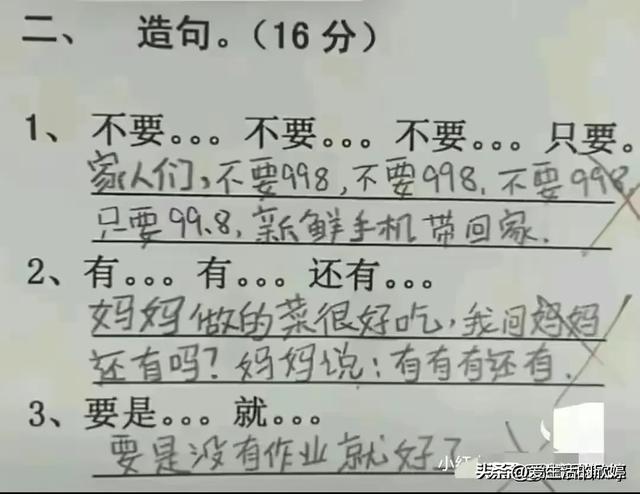 二、 造句。（16分）
1、不要。。。不要。。。不要。。。只要。
家人们，不要998，不要998，不要998，
只要99.8，新鲜手机带回家.
2、有。。。有。。。还有。。。
妈妈做的菜很好吃，我问妈妈
还有吗？妈妈说：有有有还有.
3、要是。。。就。。。
要是没有作业就好了
头条 @爱生活的欣婷